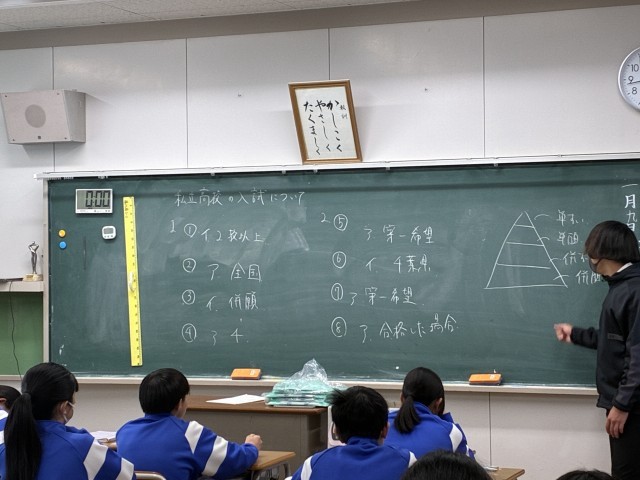 校訓
かしこく
やさしく
たくましく
0:00
私立高校の入試について
1
① イ 2校以上
② ア. 全国
③ イ. 併願
④ ア 千
2
⑤ ア. 第一希望
⑥ イ. 千葉県
⑦ ア. 第一希望
⑧ ア. 合格した場合
単願
併願
一月九日
10
9
8